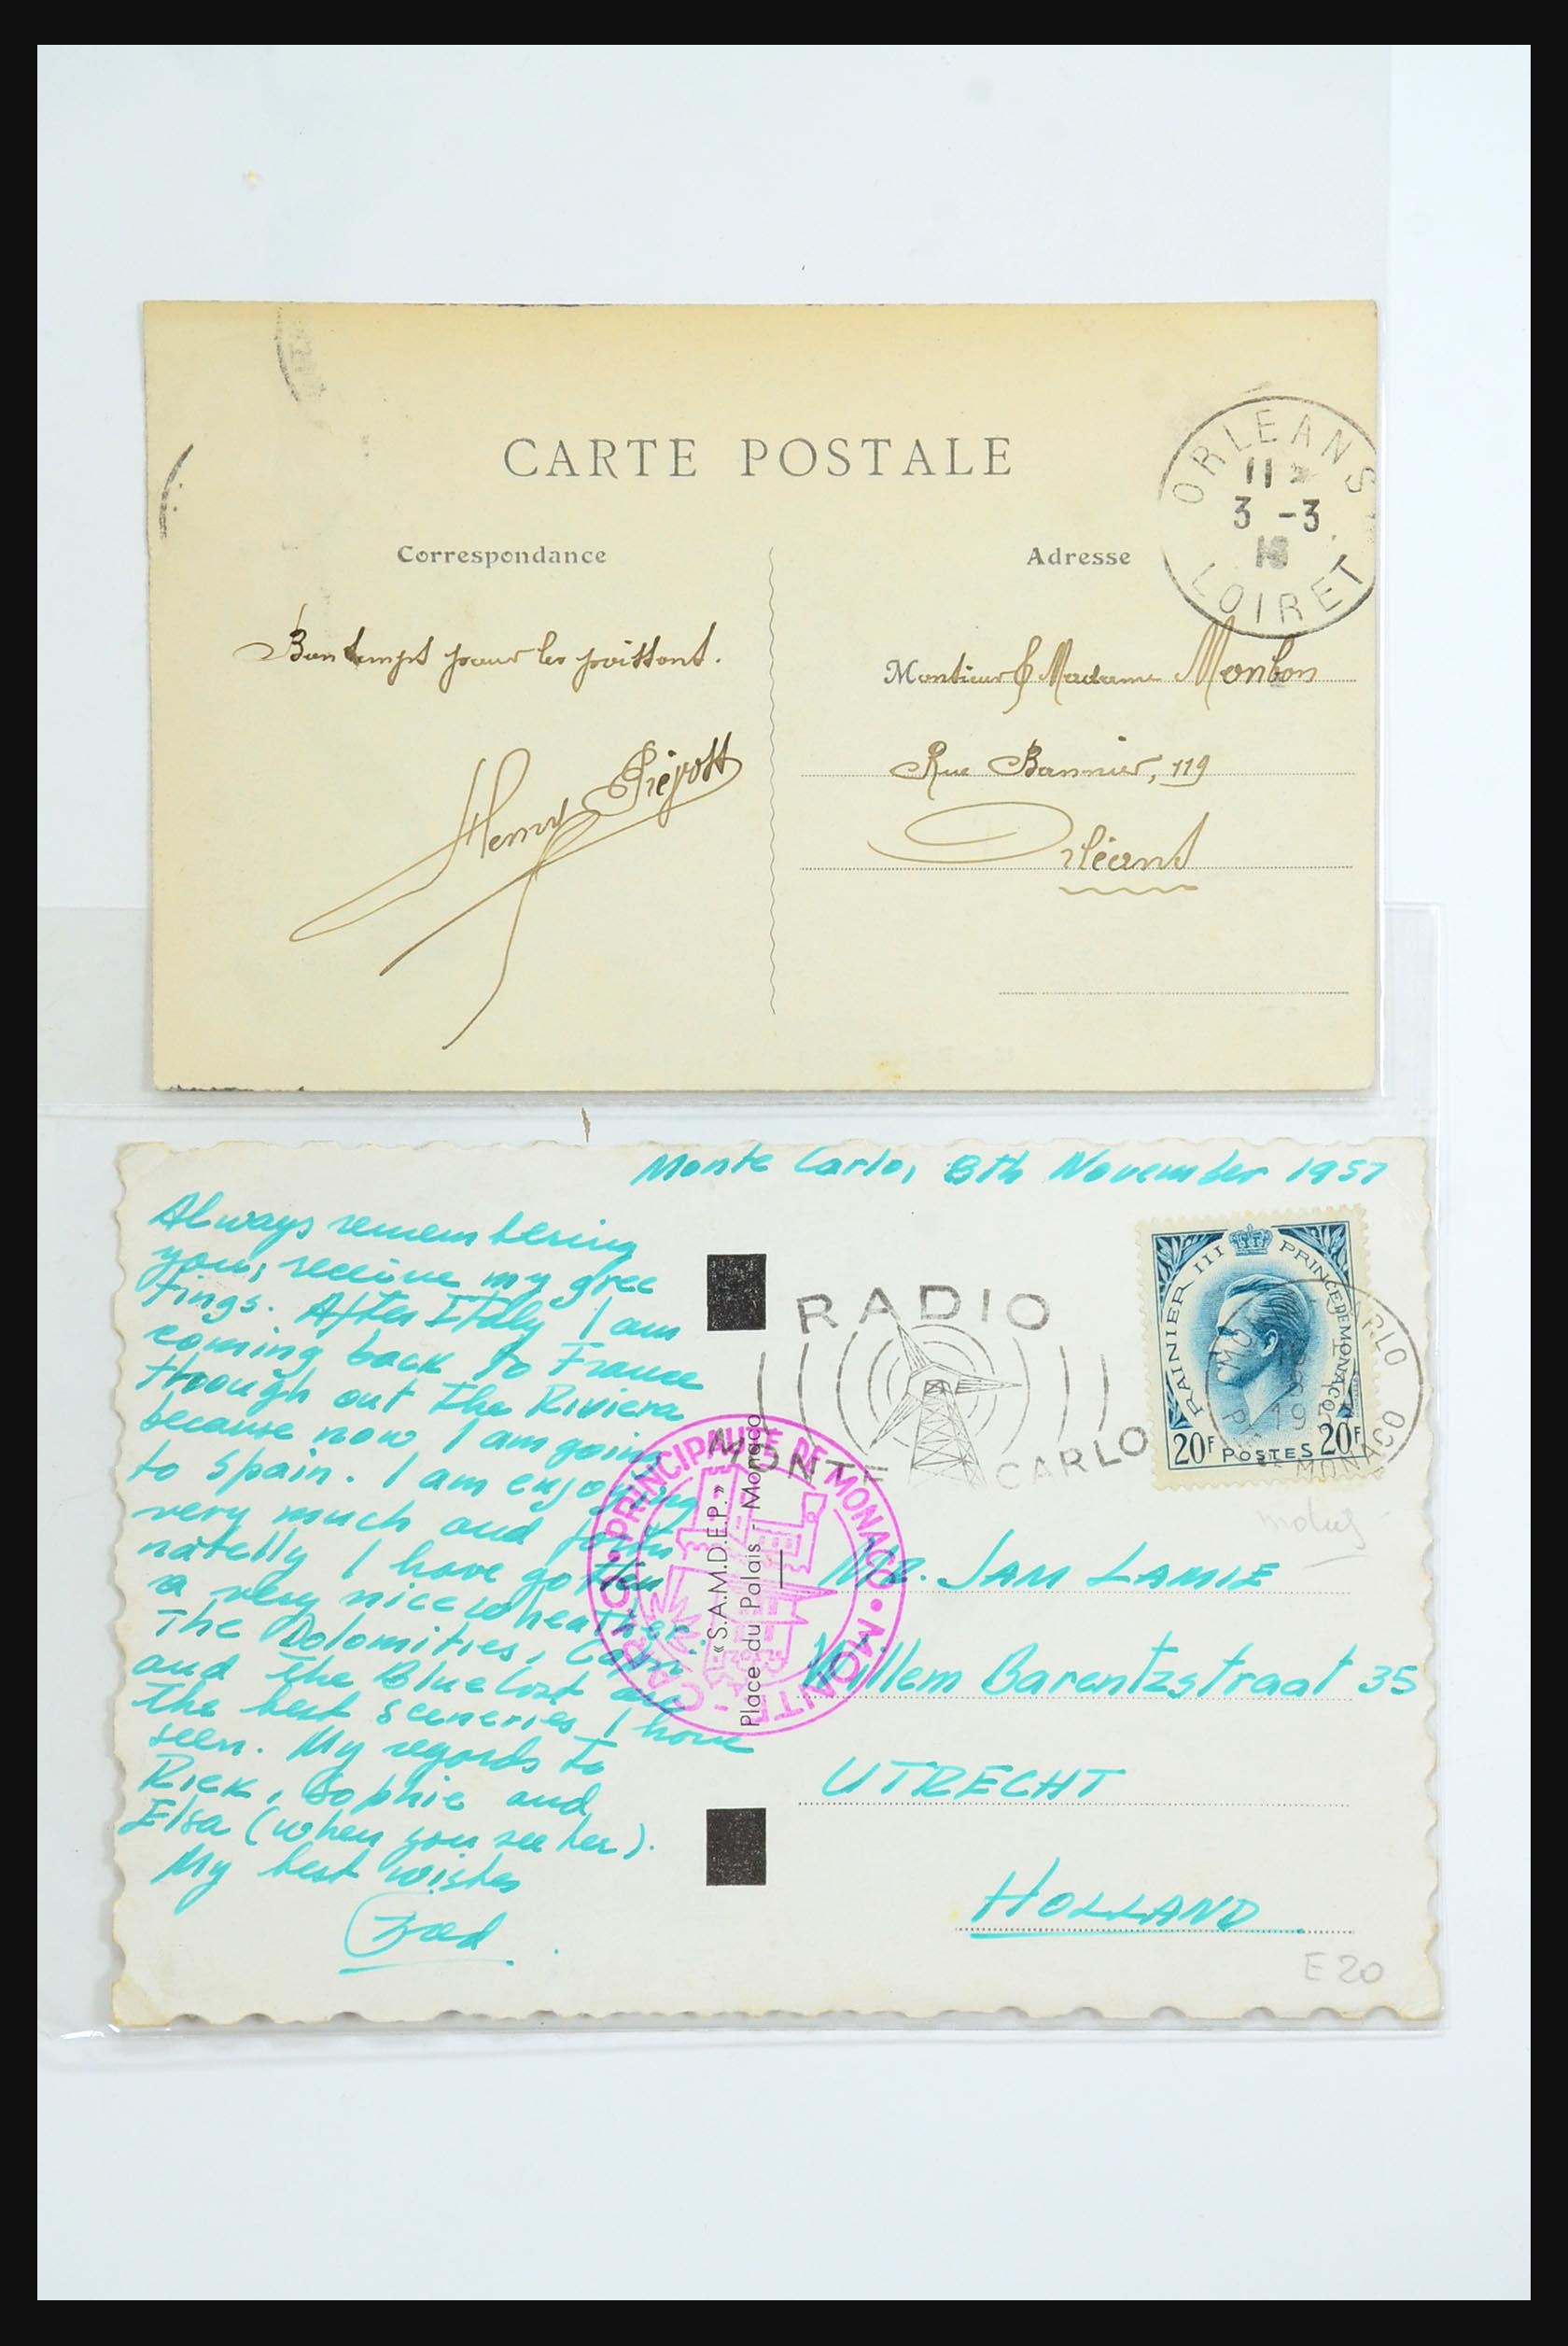 CARTE POSTALE
Correspondance
Adresse
ORLEANS
11
3 -3
16
LOIRET
Bon temps pour les poissons.
Henry Prévost
Monsieur & Madame Monbon
Rue Bannier, 119
Orléans
Monte Carlo, 8th November 1957
Always remembering
you, receive my gree
tings. After Italy I am
coming back to France
through out the Riviera
because now I am going
to Spain. I am enjoying
very much and fortu
natelly I have gotten
a very nice wheather.
The Dolomities, Capri
and the Blue Cost are
the best sceneries I have
seen. My regards to
Rick, Sophie and
Elsa (when you see her).
My best wishes
RADIO
MONTE CARLO
RAINIER III PRINCE DE MONACO
20F POSTES 20F
PRINCIPAUTÉ DE MONACO • MONTE-CARLO •
«S.A.M.D.E.P.»
Place du Palais - Monaco
MR. JAM LAMIE
Willem Barentzstraat 35
UTRECHT
HOLLAND
E 20